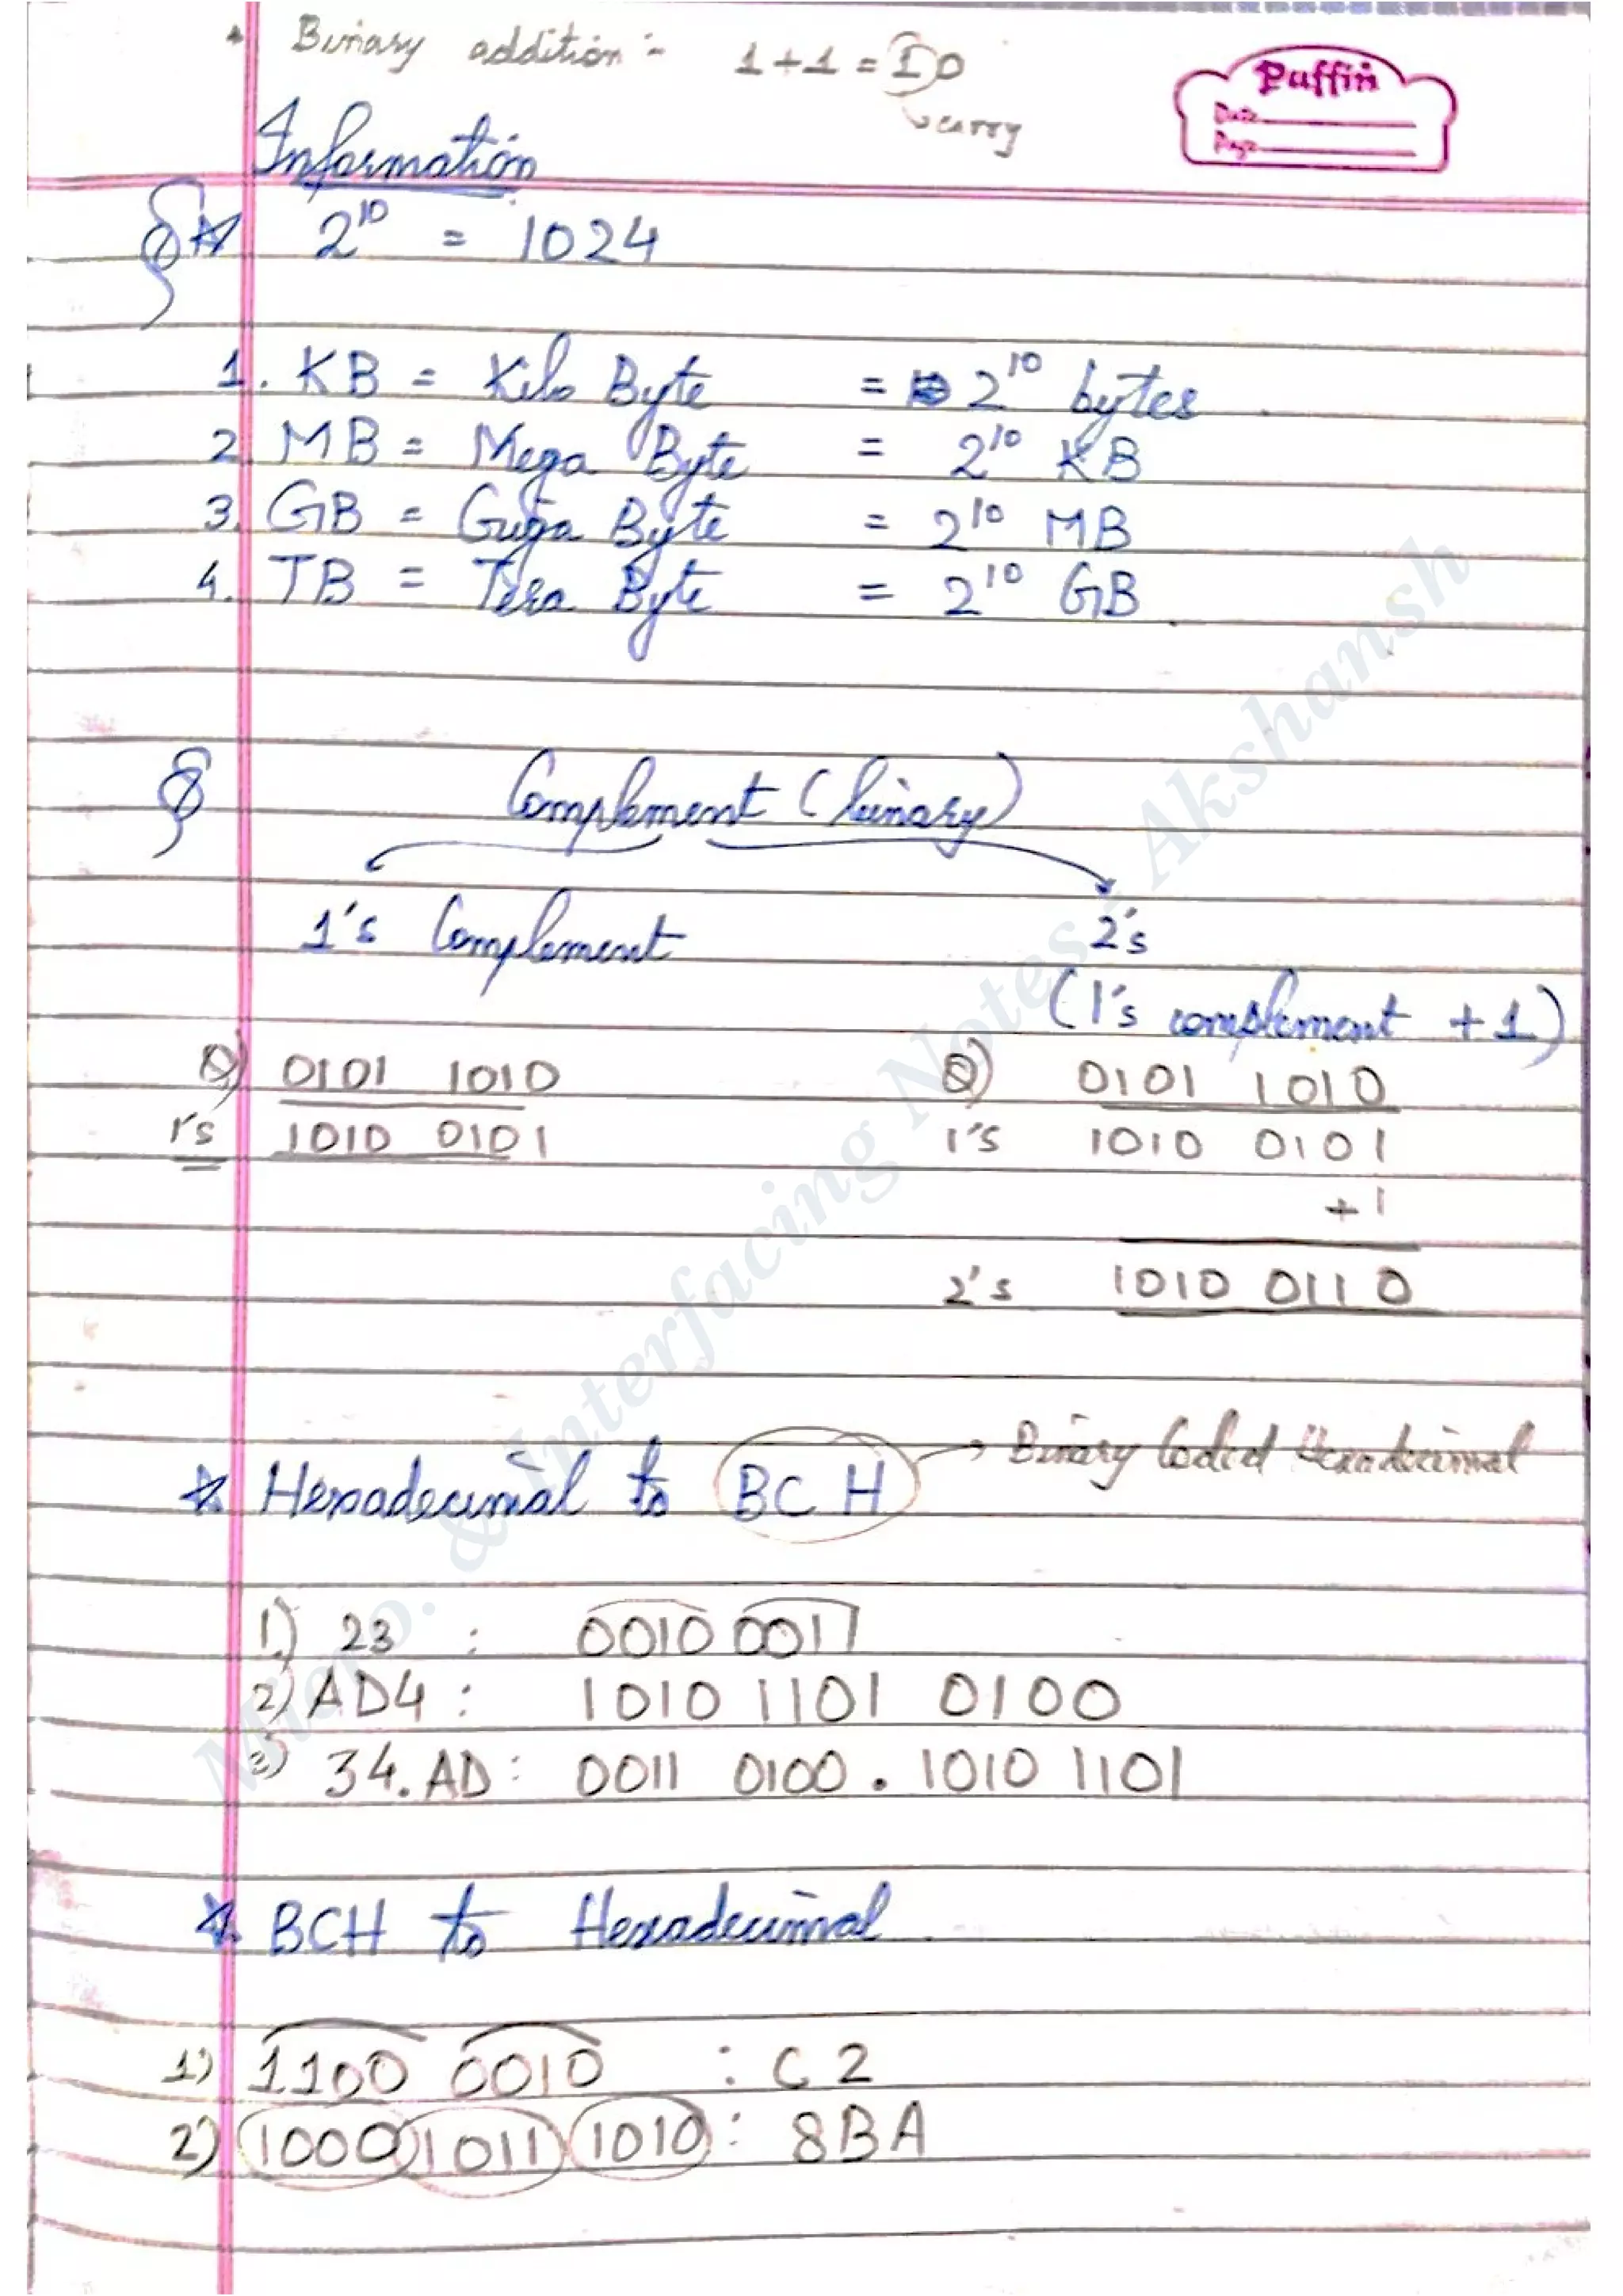 Binary addition :- 1+1 = 10
↳ carry
Puffin
Date
Page
Information
§ ☆ 2^10 = 1024
1. KB = Kilo Byte = 2^10 bytes
2. MB = Mega Byte = 2^10 KB
3. GB = Guga Byte = 2^10 MB
4. TB = Tera Byte = 2^10 GB
§ Complement (binary)
1's Complement 2's
(1's complement + 1)
Q) 0101 1010 Q) 0101 1010
1's 1010 0101 1's 1010 0101
+ 1
2's 1010 0110
☆ Hexadecimal to BCH → Binary Coded Hexadecimal
1) 23 : 0010 0011
2) AD4 : 1010 1101 0100
3) 34.AD : 0011 0100 . 1010 1101
☆ BCH to Hexadecimal
1) 1100 0010 : C2
2) 1000 1011 1010 : 8BA
Micro. & Interfacing Notes - Akshansh